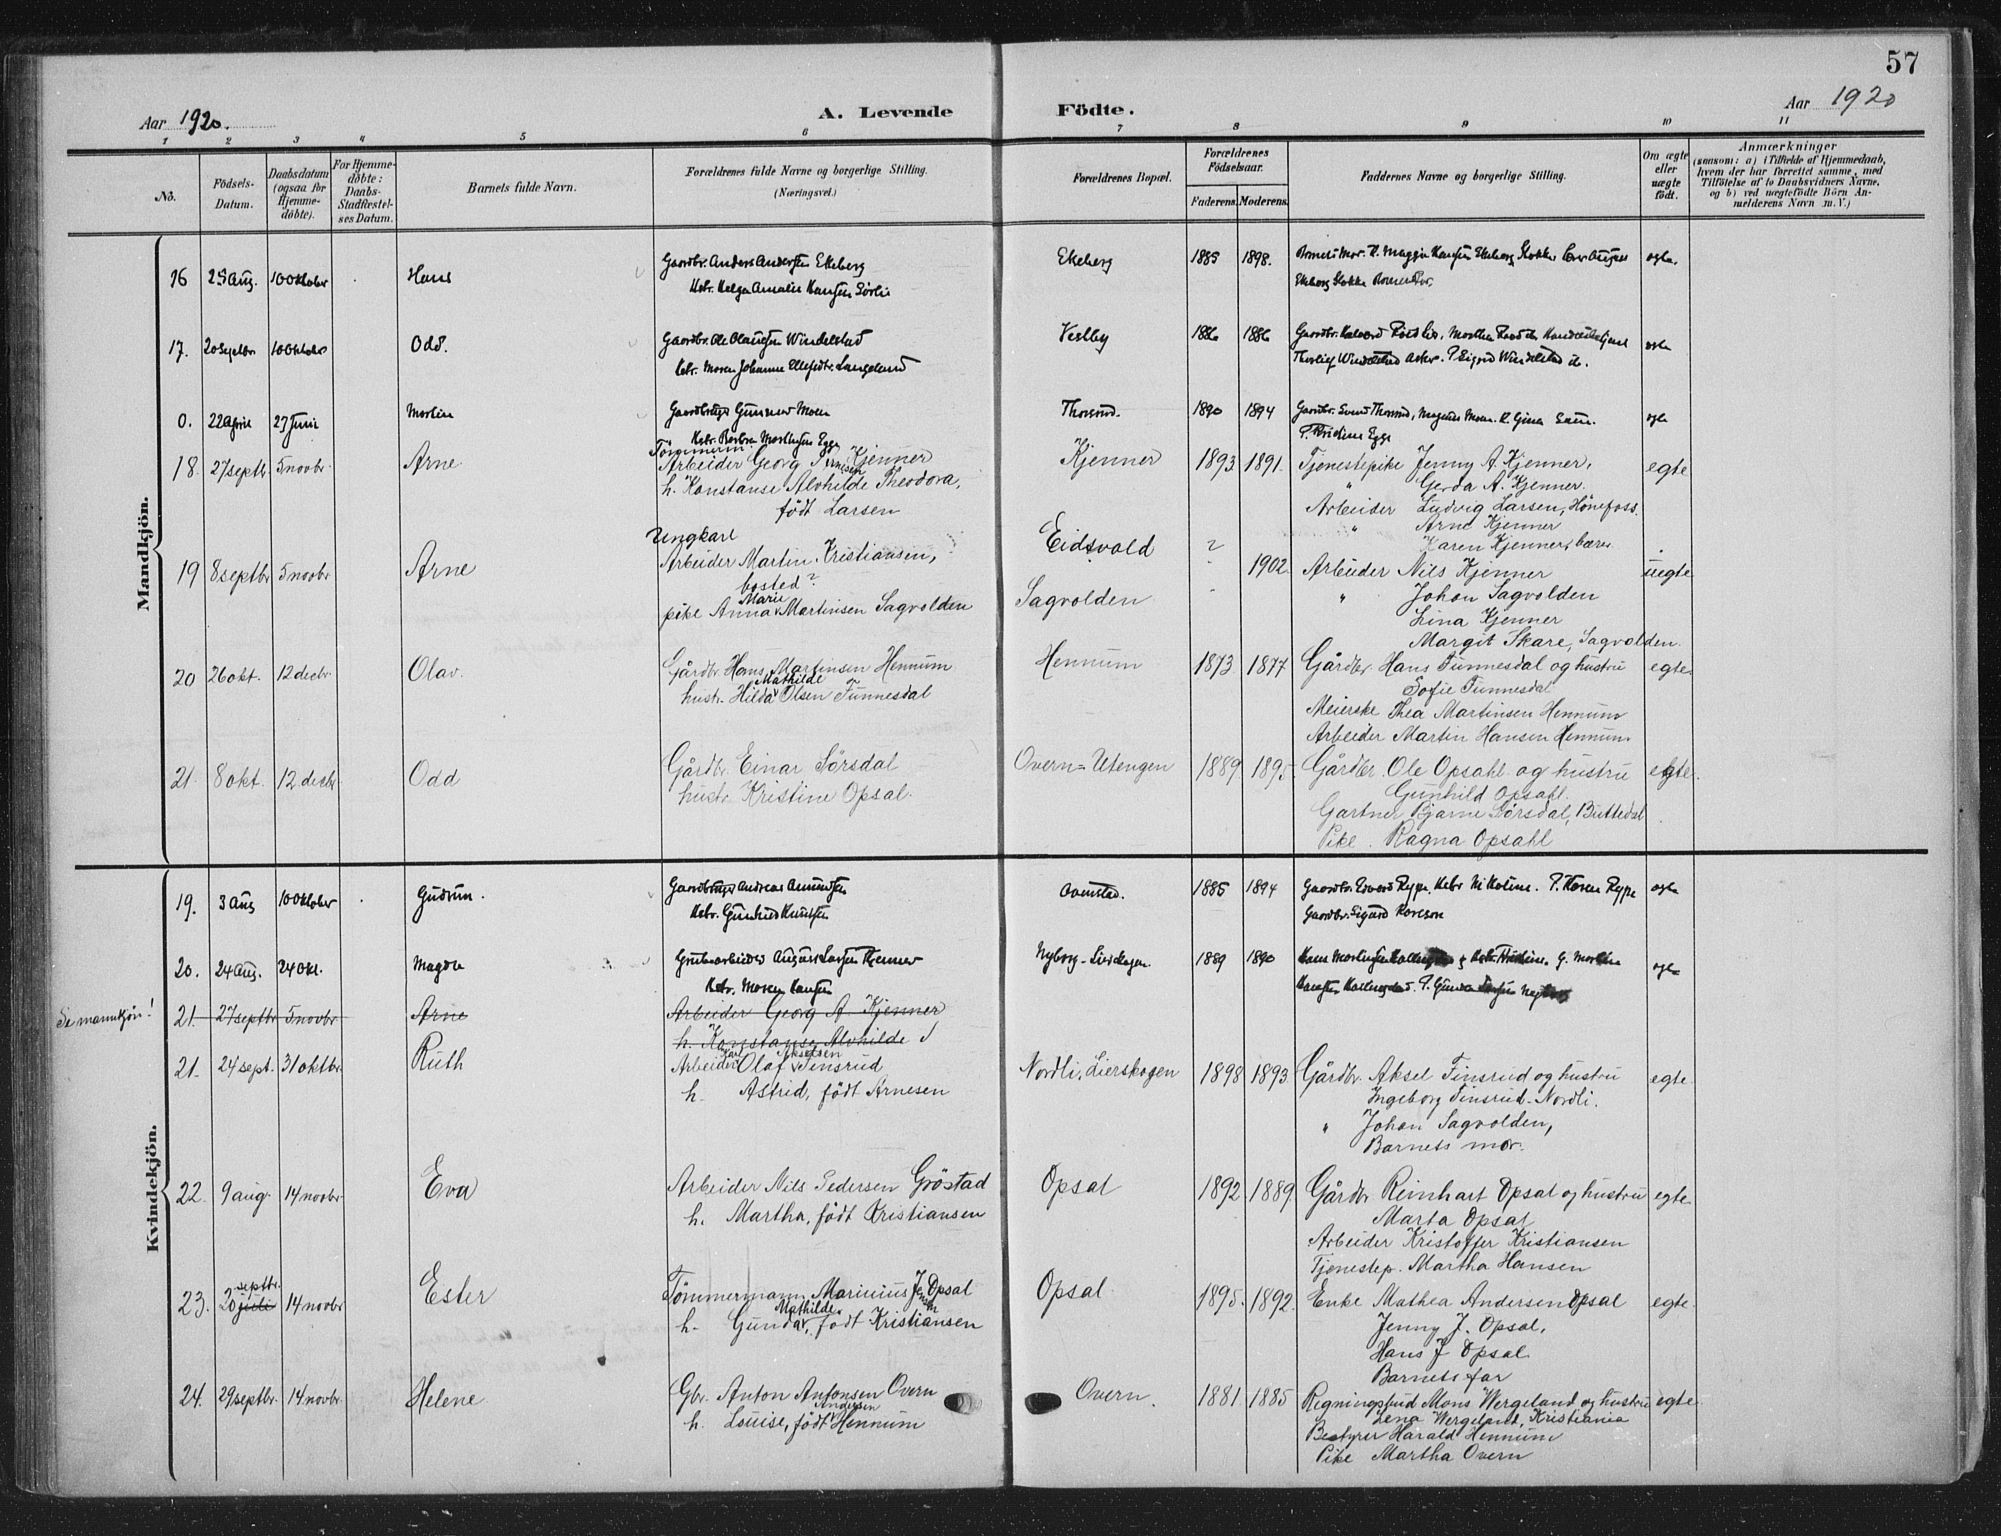 57
Aar 1920.
A. Levende Födte.
Aar 1920
1 2 3 4 5 6 7 8 9 10 11
No.
Födsels-Datum.
Daabsdatum (ogsaa for Hjemme-döbte).
For Hjemme-döbte: Daabs-Stadfestel-ses Datum.
Barnets fulde Navn.
Forældrenes fulde Navne og borgerlige Stilling.
(Næringsvei.)
Forældrenes Bopæl.
Forældrenes Födselsaar.
Faderens. Moderens.
Faddernes Navne og borgerlige Stilling.
Om ægte eller uægte födt.
Anmærkninger
(saasom: a) i Tilfælde af Hjemmedaab,
hvem der har forrettet samme, med
Tilföielse af to Daabsvidners Navne,
og b) ved uægtefödte Börn An-
melderens Navn m. V.)
Mandkjön.
16 25 Aug. 10 Oktober Hans Gaardbr. Anders Andersen Ekeberg Ekeberg 1885 1898. egte.
Hstr. Helga Amalie Hansen Sörlie
17. 20 Septbr 10 Oktober Odd. Gaardbr. Ole Olausen Windelstad Vestby 1886 1886 egte
Hstr. Maren Johanne
0. 22 April 27 Juni Martin Gaardbruger Gunnar Moen Thorsrud. 1890 1894 egte
Hstr. Barbra Mathisen Egge
Tömmerm.
18. 27 septbr. 5 novbr. Arne Arbeider Georg Arnesen Kjenner Kjenner 1893. 1891. Tjenestepike Jenny A. Kjenner, egte
h. Konstanse Alvhilde Theodora, " Gerda A. Kjenner.
födt Larsen Arbeider Ludvig Larsen, Hönefoss.
" Arne Kjenner
Ungkarl Karen Kjenner, bærer
19 8 septbr 5 novbr Arne Arbeider Martin Kristiansen, Eidsvold ? 1902. Arbeider Nils Kjenner uegte.
bosted? " Johan Sagvolden
pike Anna Marie Martinsen Sagvolden Sagvolden Lina Kjenner
Margit Skare, Sagvolden.
20 26 okt. 12 decbr. Olav. Gårdbr. Hans Martinsen Hennum Hennum 1873. 1877 Gårdbr. Hans Tunnesdal og hustru egte.
hustr. Hilda Mathilde Olsen Tunnesdal Sofie Tunnesdal
Meierske Thea Martinsen Hennum
Arbeider Martin Hansen Hennum.
21. 8 okt. 12 decbr. Odd Gårdbr. Einar Sörsdal Overn=Utengen 1889. 1895. Gårdbr. Ole Opsahl og hustru egte.
hustr. Kristine Opsal. Gunhild Opsahl.
Gartner Bjarne Sörsdal, Buttedal
Pike. Ragna Opsahl
Kvindekjön.
19. 3 Aug 10 Oktober Gudrun. Gaardbruger Andreas Amundsen 1885 1894 Gaardbr. Edvard Rype, Hstr Nikoline. P. Karen Rype egte
Hstr. Gunhild Knudsen Gaardbr. Sigurd
20. 24 Aug. 24 Okt. Magda Grubearbeider August Larsen Kjenner Nyborg-Lierskogen. 1889 1890 egte
Hstr. Maren Hansen
Se mannkjön!
21. 27 septbr 5 novbr Arne Arbeider Georg A. Kjenner
h. Konstanse Alvhilde
21. 24 sept. 31 oktbr. Ruth Arbeider Olaf Karl Akselsen Tinsrud Nordli, Lierskogen 1898 1893 Gårdbr. Aksel Tinsrud og hustru egte.
h. Astrid, födt Arnesen Ingeborg Tinsrud-Nordli.
" Johan Sagvolden,
Barnets mor.
22. 9 aug. 14 novbr. Eva Arbeider Nils Pedersen Gröstad Opsal 1892 1889. Gårdbr. Reinhart Opsal og hustru egte.
h. Martha, födt Kristiansen Marta Opsal
Arbeider Kristoffer Kristiansen
Tjenestep. Martha Hansen
septbr.
23. 20 juli 14 novbr Ester Tömmermann Marinius Opsal Opsal. 1895. 1892. Enke Mathea Andersen Opsal egte.
h. Gunda Mathilde, födt Kristiansen Jenny J. Opsal.
Hans J Opsal
Barnets far
24. 29 septbr. 14 novbr. Helene Gbr. Anton Antonsen Overn Overn. 1881. 1885 Regningsfud Mons Wergeland og hustru egte
h. Louise, födt Andersen Hennum Lena Wergeland, Kristiania
Bestyrer Harald Hennum
Pike Martha Overn